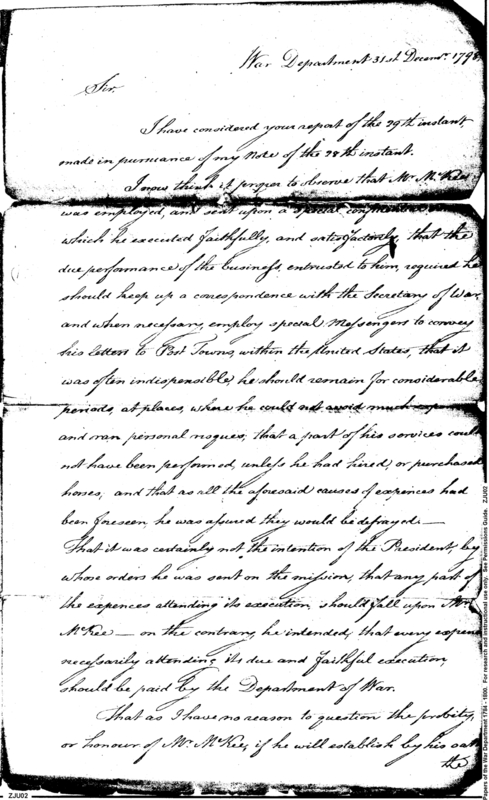 War Department 31st Decemr. 1798,
Sir,
I have considered your report of the 29th instant,
made in pursuance of my Note of the 28th instant.
I now think it proper to observe that Mr. McKee
was employed, and sent upon a special
which he executed faithfully, and satisfactorily, that the
due performance of the business, entrusted to him, required he
should keep up a correspondence with the Secretary of War,
and when necessary, employ special Messengers to convey
his letters to Post Towns, within the United States, that it
was often indispensible, he should remain for considerable
periods, at places, where he could not avoid much
and ran personal risques, that a part of his services could
not have been performed, unless he had hired, or purchased
horses, and that as all the aforesaid causes of expences had
been foreseen, he was assured they would be defrayed. —
That it was certainly not the intention of the President, by
whose orders he was sent on the mission, that any part of
the expences attending its execution should fall upon Mr.
McKee — on the contrary he intended, that every expence
necessarily attending its due and faithful execution
should be paid by the Department of War.
That as I have no reason to question the probity,
or honour of Mr. McKee, if he will establish by his oath
the
ZJU02
Papers of the War Department 1784 - 1800. For research and instructional use only. See Permissions Guide. ZJU02